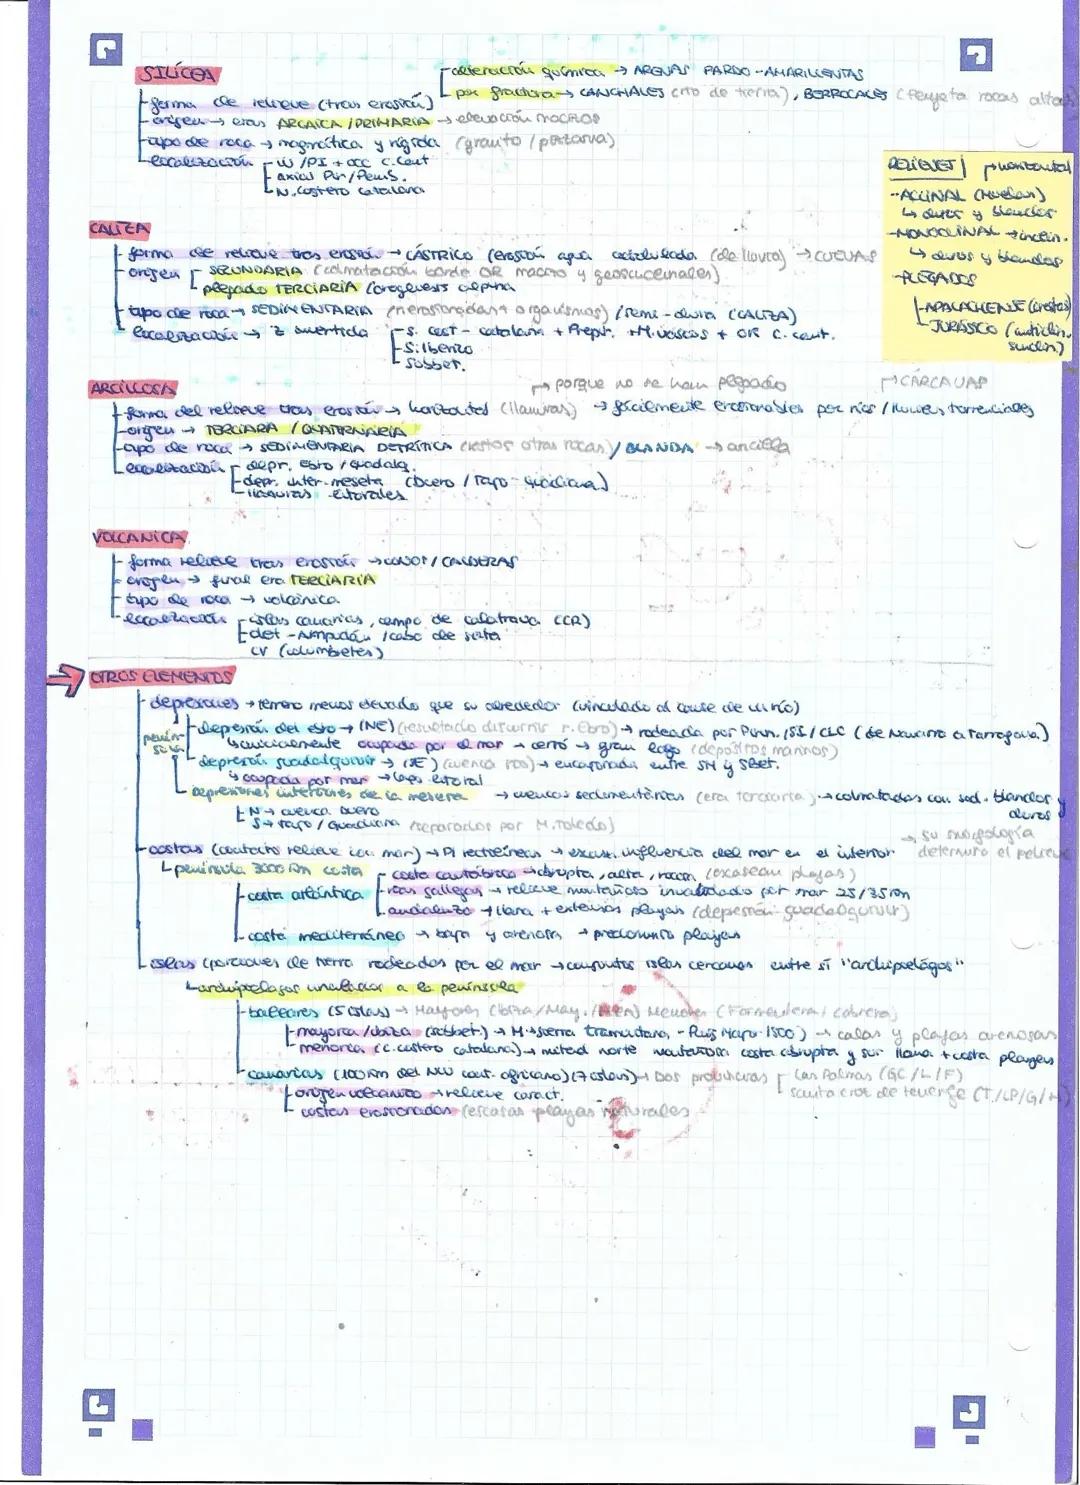 SILÍCEA
alteración química → ARENAS PARDO-AMARILLENTAS
forma de relieve (tras erosión)
por fractura → CANCHALES (río de tierra), BERROCALES (rocas altas)
origen → eras ARCAICA/PRIMARIA → elevación macizos
tipo de roca → magmática y rígida (granito / pizarra)
localización
W/PI + occ C.Cent
axial Pir/Penib.
N. costero catalana
RELIEVES
horizontal
-ACLINAL
↳ duros y blandos
-MONOCLINAL → inclin.
↳ duros y blandos
-PLEGADOS
APALACHENSE (crestas)
JURÁSICO (anticlin. sinclin)
CALIZA
forma de relieve tras erosión → CÁSTRICO (erosión agua acidulada (de lluvia) → CUEVAS
origen
SECUNDARIA (colmatación borde OR macizo y geosinclinales)
plegado TERCIARIA (orogénesis alpina
tipo de roca → SEDIMENTARIA (+ organismos) / semi-dura (CALIZA)
localización → Z invertida
s. cost-catalana + Prepir. + M.vascos + OR C. cent.
S. Ibérico
Subbét.
ARCILLOSA
porque no se han plegado
CÁRCAVAS
forma del relieve tras erosión → horizontal (llanuras) → fácilmente erosionables por ríos / lluvias torrenciales
origen → TERCIARIA / CUATERNARIA
tipo de roca → SEDIMENTARIA DETRÍTICA (restos otras rocas) / BLANDA → arcilla
localización
depr. Ebro / Guadalq.
depr. inter-meseta (Duero / Tajo-Guadiana)
llanuras litorales
VOLCÁNICA
forma relieve tras erosión → CONOS / CALDERAS
origen → final era TERCIARIA
tipo de roca → volcánica
localización
islas canarias, campo de calatrava (CR)
Ampudán / cabo de gata
CV (columbetes)
OTROS ELEMENTOS
depresiones → terreno menos elevado que su alrededor (vinculado al cauce de un río)
península
depresión del ebro → (NE) (resultado discurrir r.Ebro) → rodeada por Pirin. /SI / CLC (de Navarra a Tarragona)
↳ inicialmente ocupada por el mar → cerró → gran lago (depósitos marinos)
depresión guadalquivir → (SE) (cuenca río) → encajonada entre SM y SBet.
↳ ocupada por mar → lago litoral
depresiones interiores de la meseta → cuencas sedimentarias (era terciaria) → colmatadas con sed. blandos y duros
N → cuenca Duero
S → tajo / Guadiana (separados por M.Toledo)
costas (contacto relieve con mar) → PI rectilíneas → escasa influencia del mar en el interior
su morfología determinó el relieve
península 3000 km costa
costa atlántica
costa cantábrica → abrupta, alta, rocosa (escasean playas)
rías gallegas → relieve montañoso inundado por mar 25/35 km
andaluza → llana + extensas playas (depresión guadalquivir)
costa mediterráneo → baja y arenosa → predominio playas
islas (porciones de tierra rodeadas por el mar → conjuntos islas cercanas entre sí "archipiélagos"
↳ archipiélagos vinculados a la península
baleares (5 islas) → Mayores (Ibiza / May. / Men) Menores (Formentera / cabrera)
mayorca / ibiza (subbet.) → M → sierra tramuntana, - Puig Mayor 1500) → calas y playas arenosas
menorca (c. costero catalana) → mitad norte montañosa costa abrupta y sur llana + costa playas
canarias (100 km del NW cont. africano) (7 islas) → Dos provincias
Las Palmas (GC / L / F)
santa cruz de tenerife (T. / LP / G / H)
origen volcánico → relieve caract.
costas erosionadas (escasas playas naturales